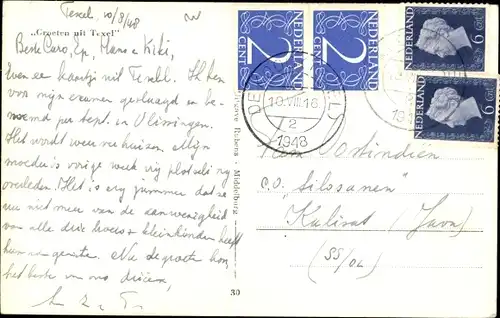 Texel, 10/8/48
„Groeten uit Texel”
Beste Caro, Ep, Hans en Kiki,
Even een kaartje uit Texel. Ik ben
voor mijn examen geslaagd en be-
noemd per sept. in Vlissingen.
Het wordt weer verhuizen. Mijn
moeder is vorige week vrij plotseling
overleden. Het is erg jammer dat ze
nu niet meer van de aanwezigheid
van alle drie + kleinkinderen heeft
kunnen genieten. Na de groeten hoor,
het beste van ons
Uitgave Rubens - Middelburg
30
2 CENT NEDERLAND
2 CENT NEDERLAND
NEDERLAND 6 ct
NEDERLAND 6 ct
10.VIII.16
2
1948
Oostindiën
c.o. "Silosanen"
Kalisat (Java)